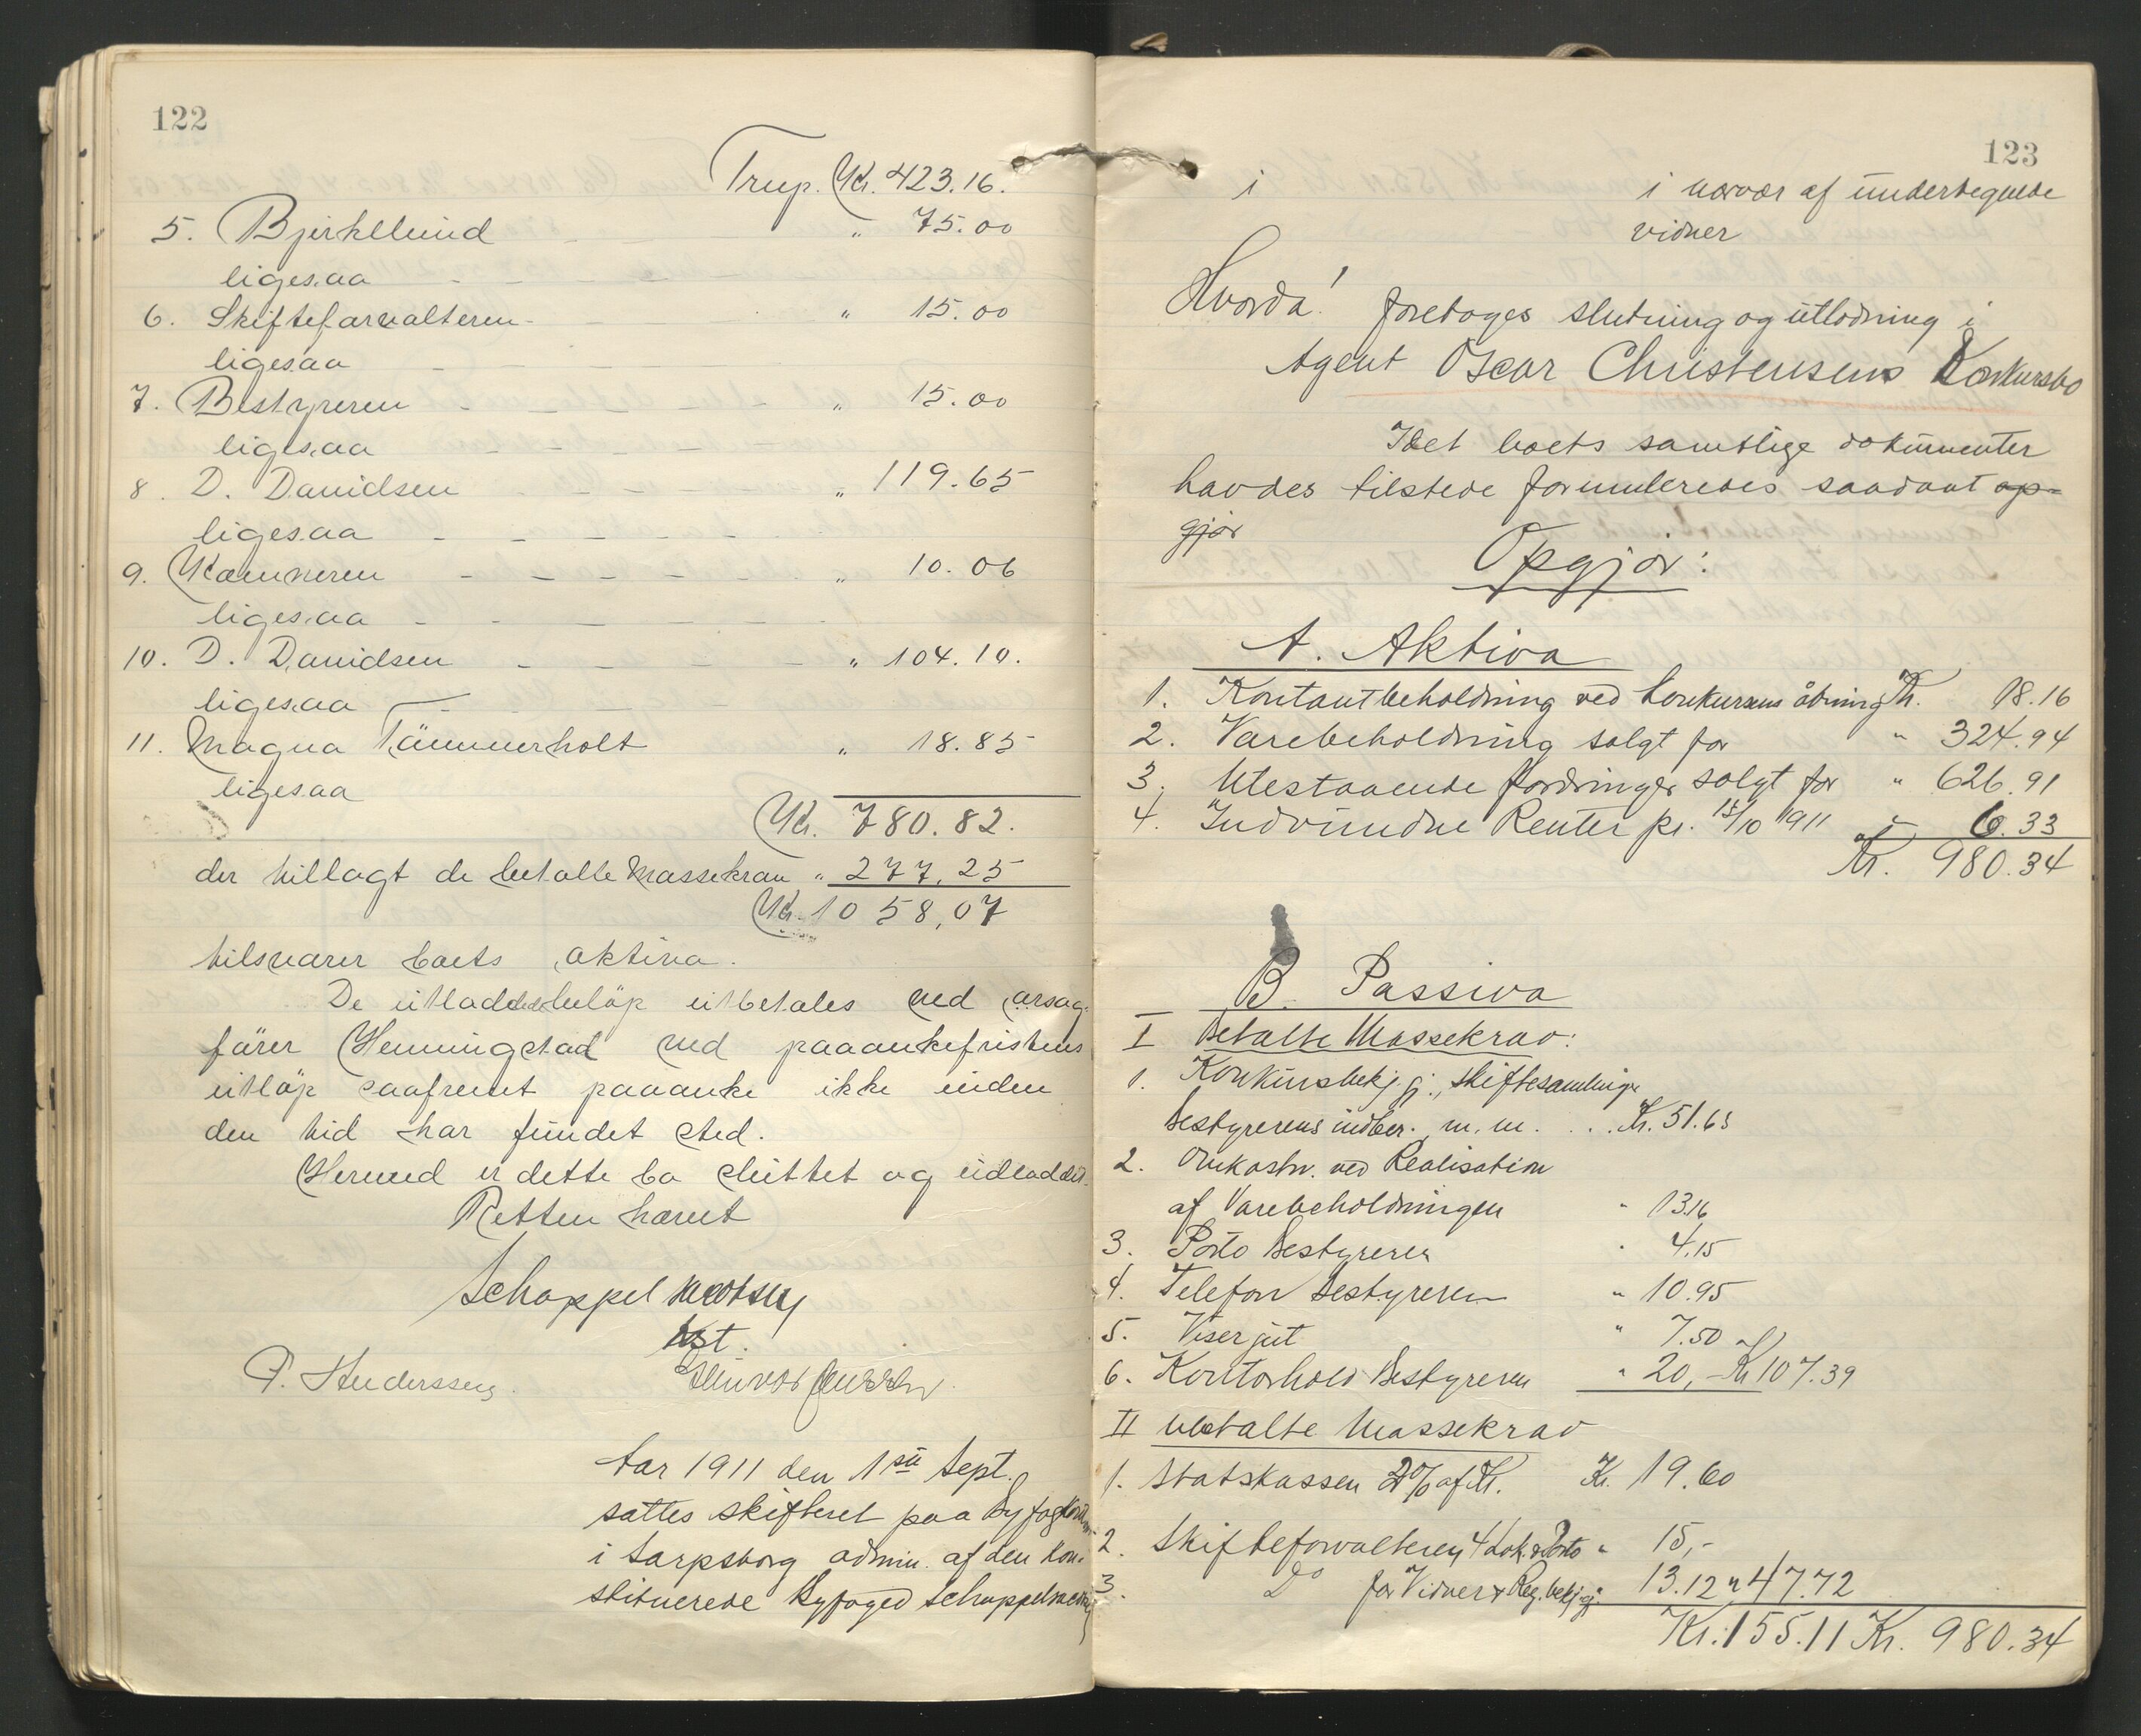 122
Trup. Kr. 423.16.
5. Bjerkelund " 75.00
ligesaa
6. Skifteforvalteren " 15.00
ligesaa
7. Bestyreren " 15.00
ligesaa
8. D. Davidsen " 119.65
ligesaa
9. Kæmneren " 10.06
ligesaa
10. D. Davidsen " 104.10.
ligesaa
11. Magna Tømmerholt " 18.85
ligesaa
Kr. 780.82.
der tillagt de betalte Massekrav " 277,25
Kr. 1058,07
tilsvarer boets aktiva.
De utloddede beløp utbetales ved orsag-
fører Henningstad ved paaankefristens
utløp saafremt paaanke ikke inden
den tid har fundet sted.
Herved er dette bo sluttet og udloddet.
Retten hævet
Schappel
kst.
P. Anderssen.
Aar 1911 den 1ste Sept.
sattes skifteret paa Byfogdkont.
i Sarpsborg admin. af den kon-
stituerede Byfoged Schappel
123
i i nærvær af undertegnede
vidner
Hvorda! foretages slutning og utlodning i
Agent Oscar Christensens Konkursbo
Idet boets samtlige dokumenter
havdes tilstede formuleredes saadant op-
gjør
Opgjør:
A. Aktiva
1. Kontantbeholdning ved konkursens åbning Kr. 18.16
2. Varebeholdning solgt for " 324.94
3. Utestaaende fordringer solgt for " 626.91
4. Indvundne Renter pr. 15/10 1911 " 6.33
Kr. 980.34
B. Passiva
I Betalte Massekrav:
1. Konkursbekj.gj., skiftesamlinger
Bestyrerens indber. m.m. . . Kr. 51.63
2. Omkostn. ved Realisation
af Varebeholdningen " 13.16
3. Porto Bestyreren " 4.15
4. Telefon Bestyreren " 10.95
5. Viserjut " 7.50
6. Kontorhold Bestyreren " 20,- Kr 107.39
II Ubetalte Massekrav
1. Statskassen 2% af Kr. Kr. 19.60
2. Skifteforvalteren 4 Dok. & Porto " 15,-
3. Do for Vidner & Reg. bekj.gj. " 13.12 " 47.72
Kr. 155.11 Kr. 980.34